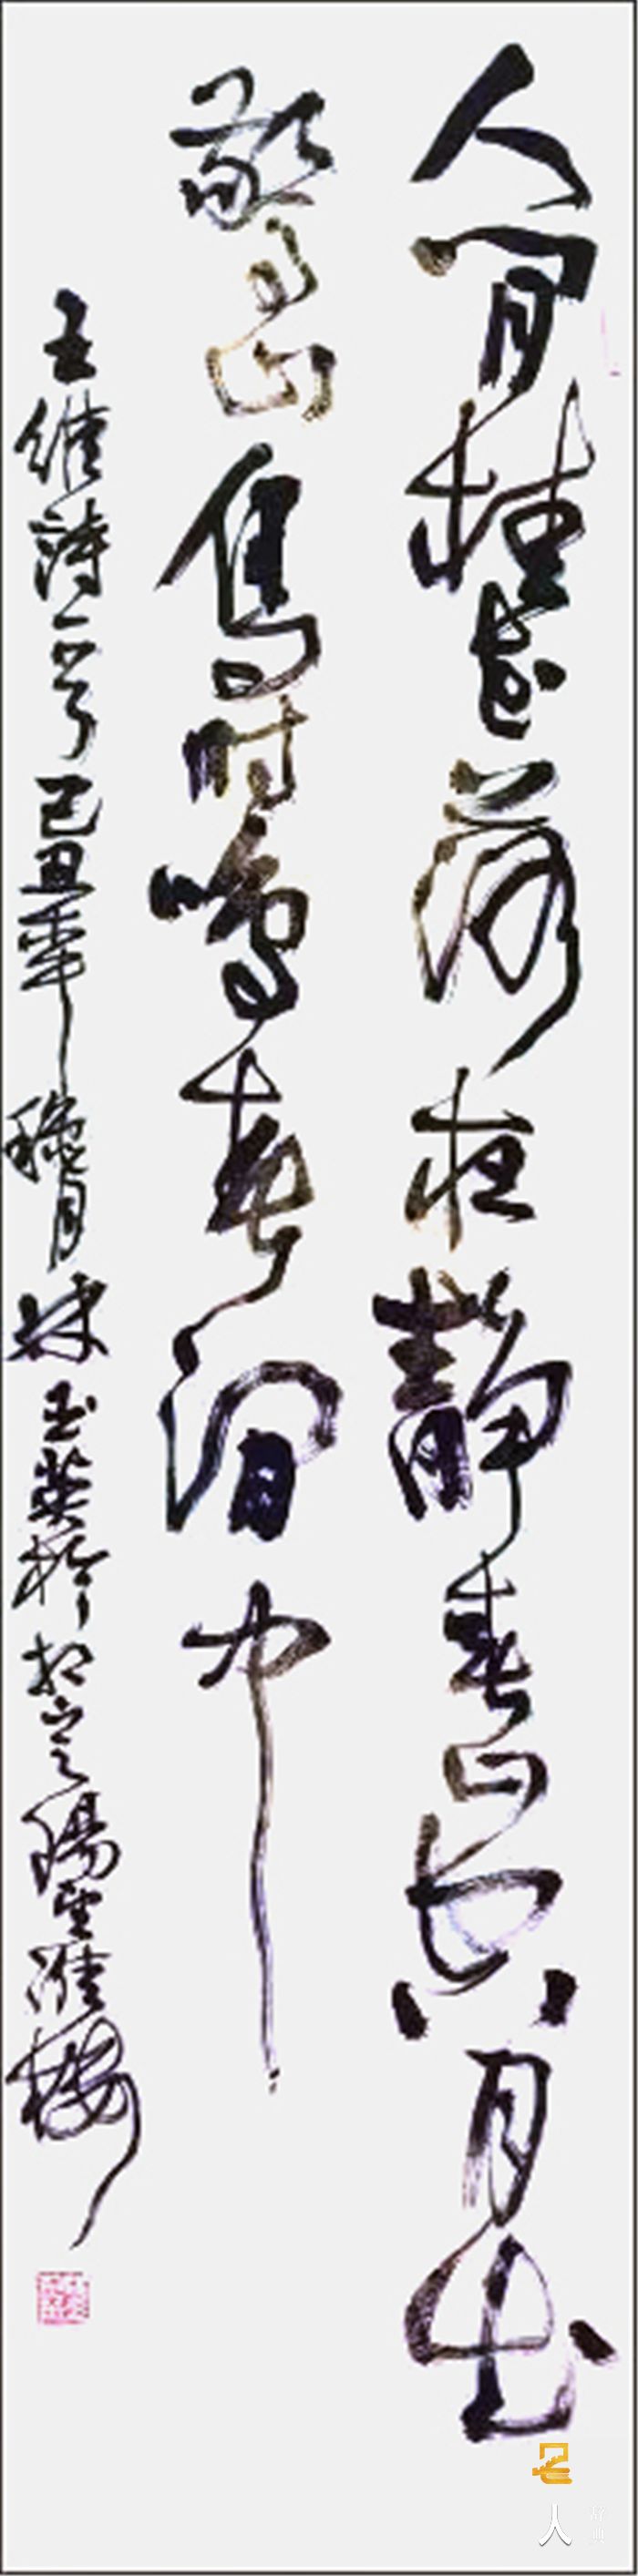 人閒桂花落夜靜春山空月出
驚山鳥時鳴春澗中
王維詩一首己丑年穐月林玉英
人
辞典